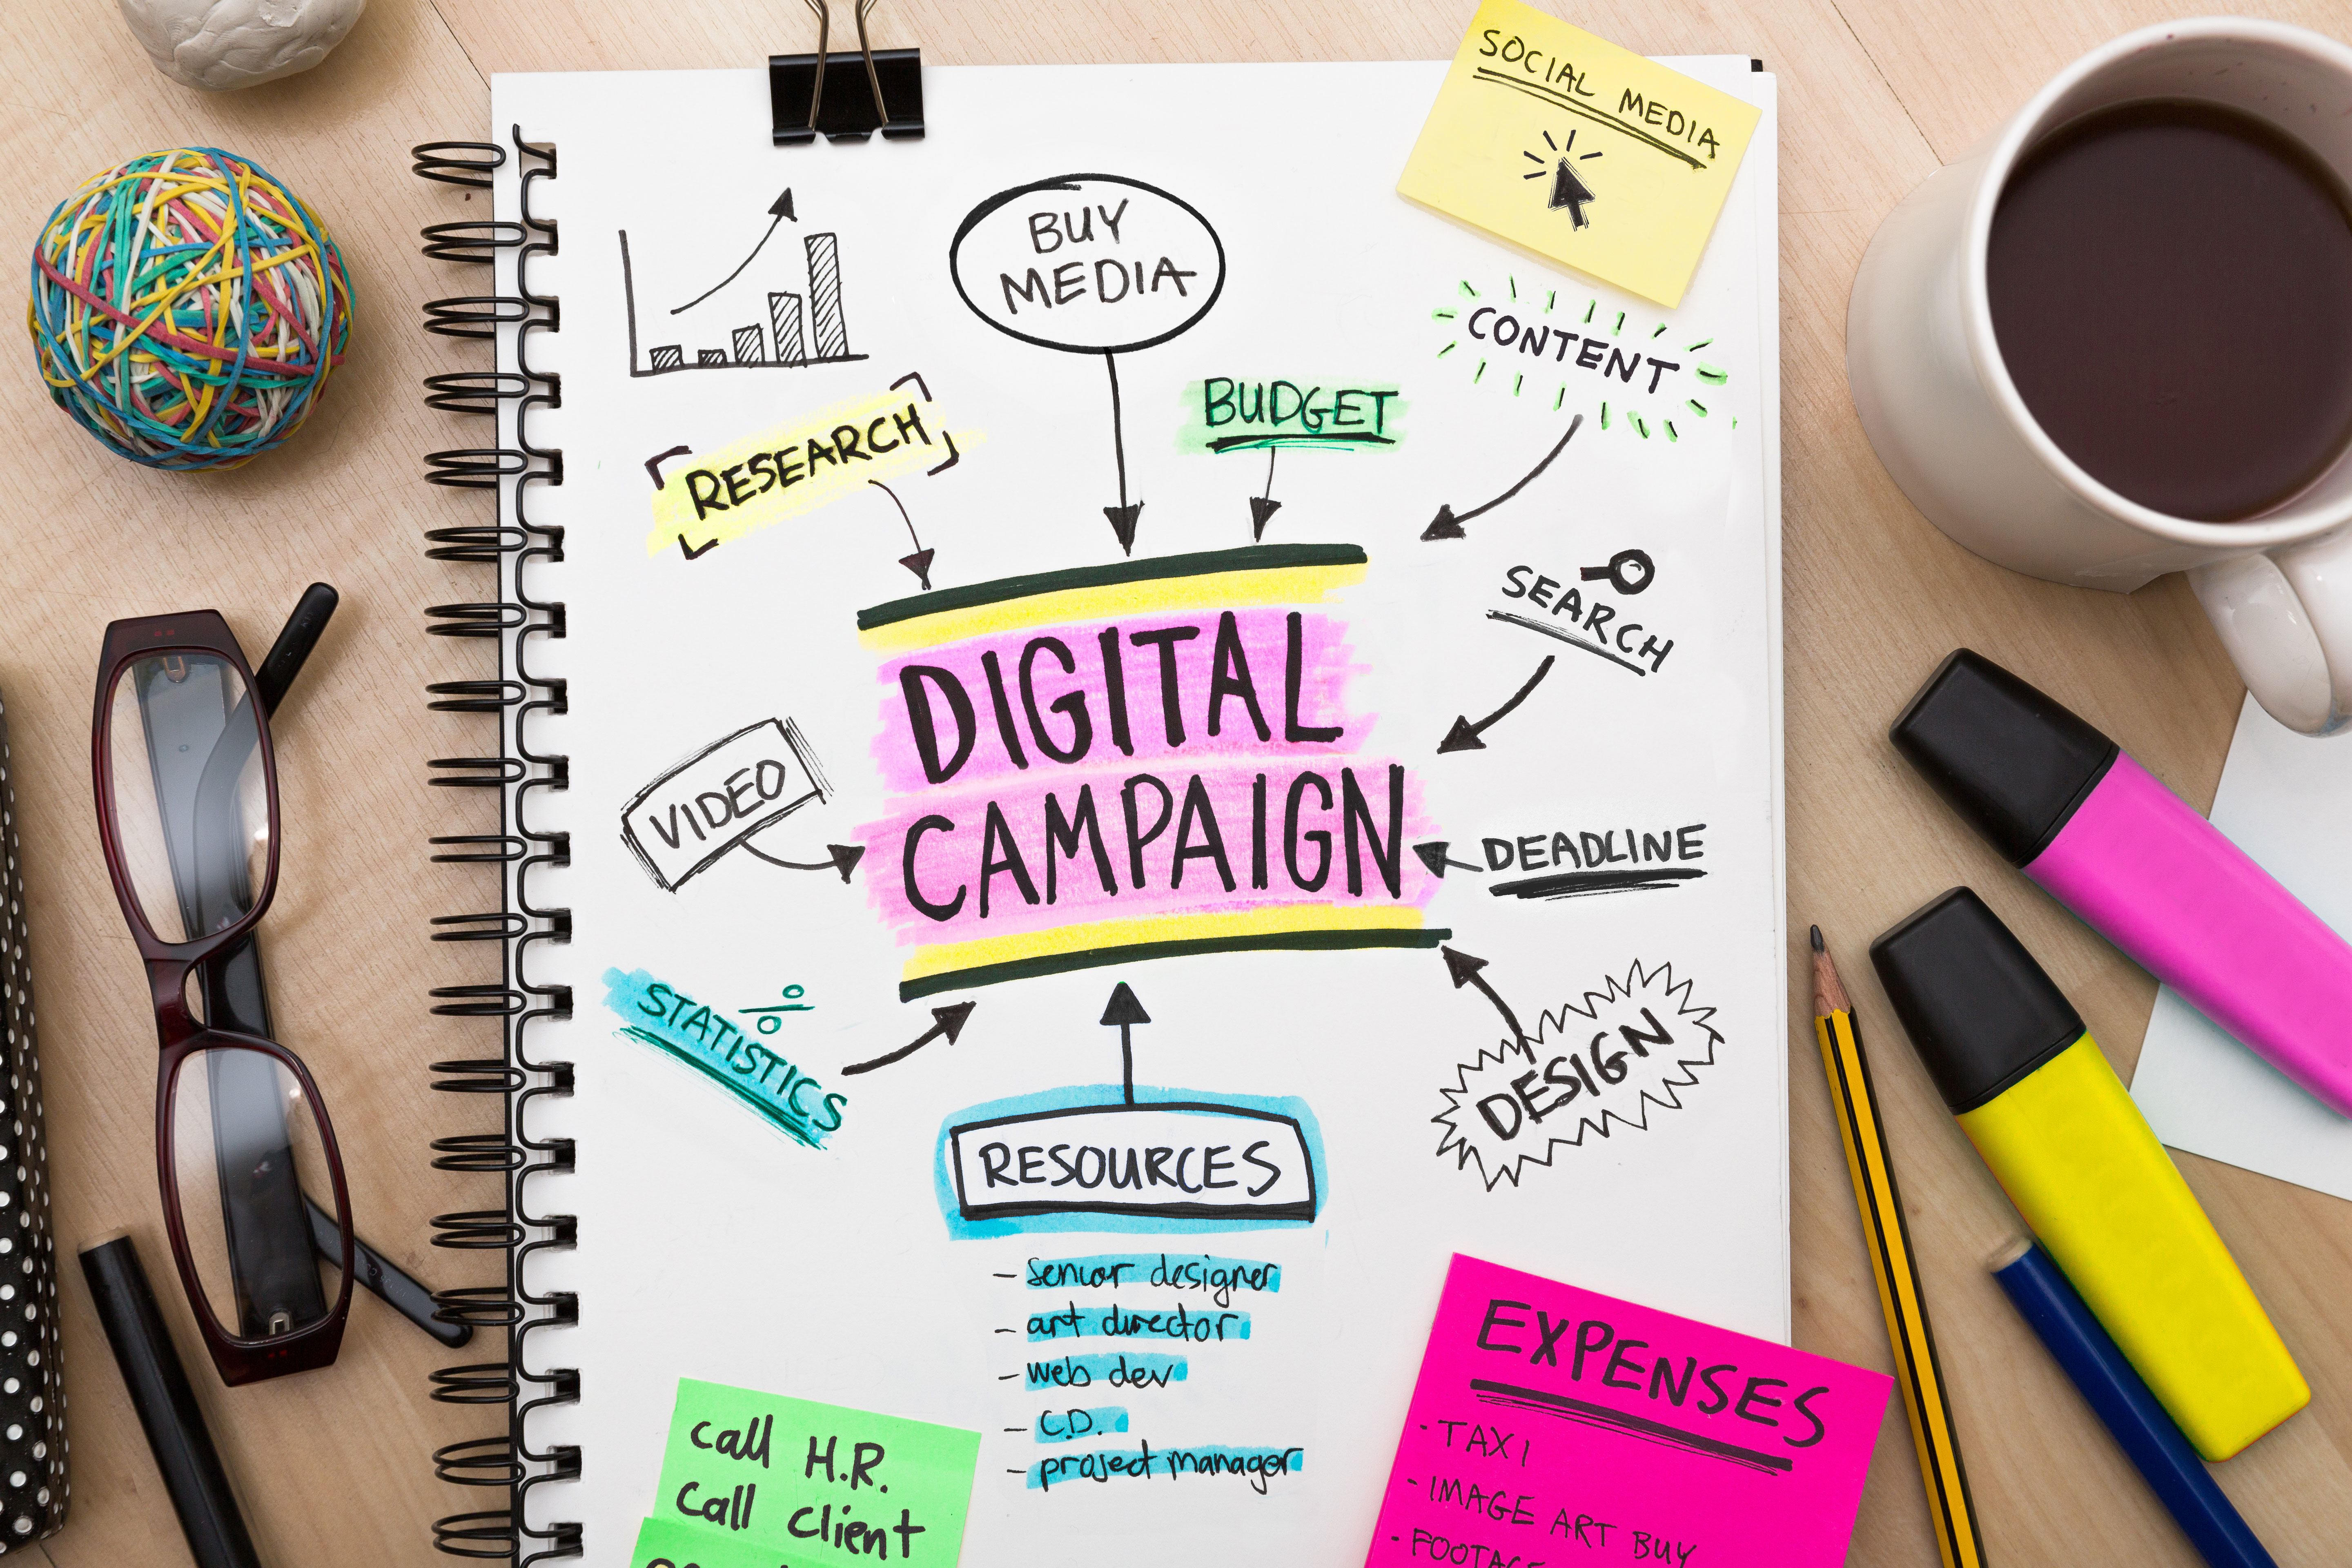 SOCIAL MEDIA
BUY
MEDIA
CONTENT
BUDGET
RESEARCH
SEARCH
DIGITAL
CAMPAIGN
VIDEO
DEADLINE
%
STATISTICS
DESIGN
RESOURCES
- senior designer
- art director
- web dev
- C.D.
- project manager
call H.R.
call client
EXPENSES
- TAXI
- IMAGE ART BUY
- FOOTAGE